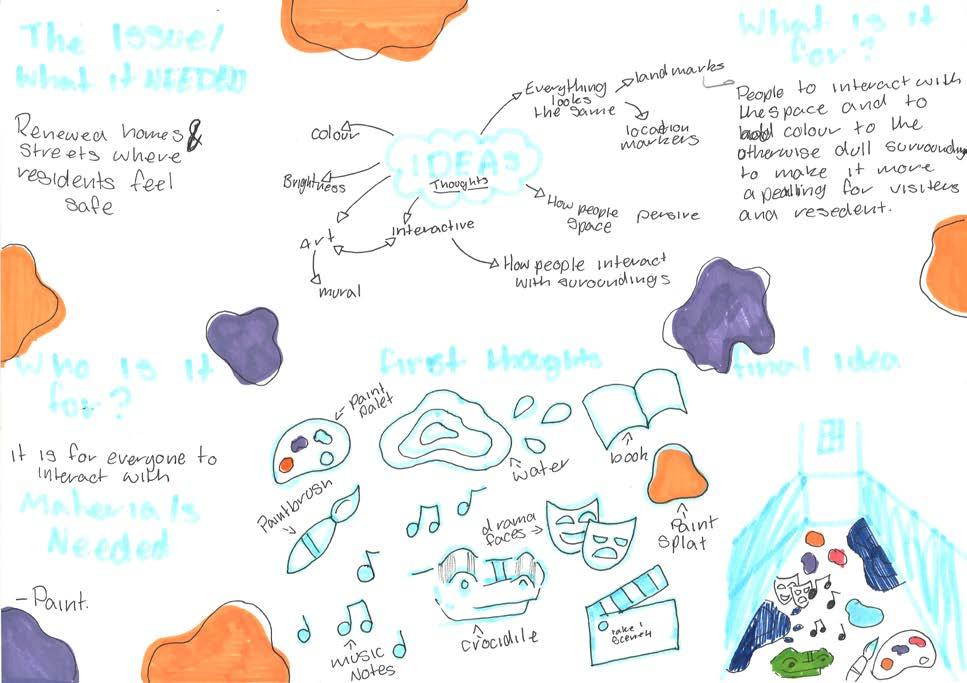 The Issue/
What it NEEDED
Renewed homes &
streets where
residents feel
safe
IDEAS
Thoughts
colour
Brightness
Art
mural
interactive
How people interact
with suroundings
How people persive
space
Everything
looks
the same
landmarks
location
markers
What is it
for?
People to interact with
the space and to
add colour to the
otherwise dull surroundings
to make it more
apealling for visiters
and resedent.
Who is it
for?
it is for everyone to
interact with
Materials
Needed
-Paint.
first thoughts
Paint
palet
water
book
Paintbrush
drama
faces
Paint
Splat
music
Notes
crocidile
take 1
Scene 4
final idea